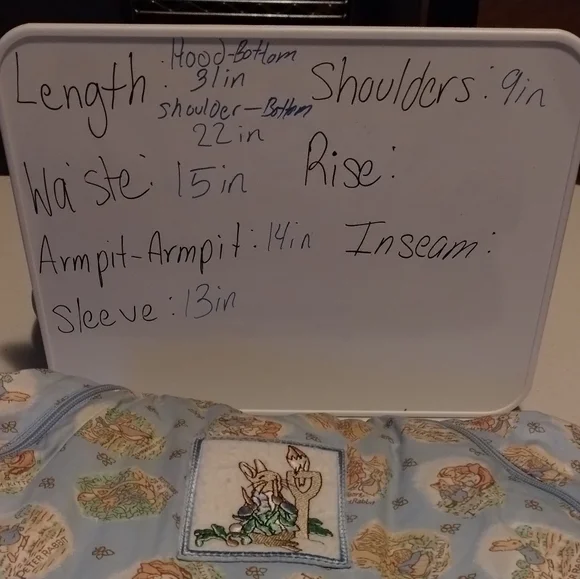 Length: Hood-Bottom
31in
shoulder-Bottom
22in
Shoulders: 9in
Waiste: 15in
Rise:
Armpit-Armpit: 14in
Inseam:
Sleeve: 13in
PETER RABBIT